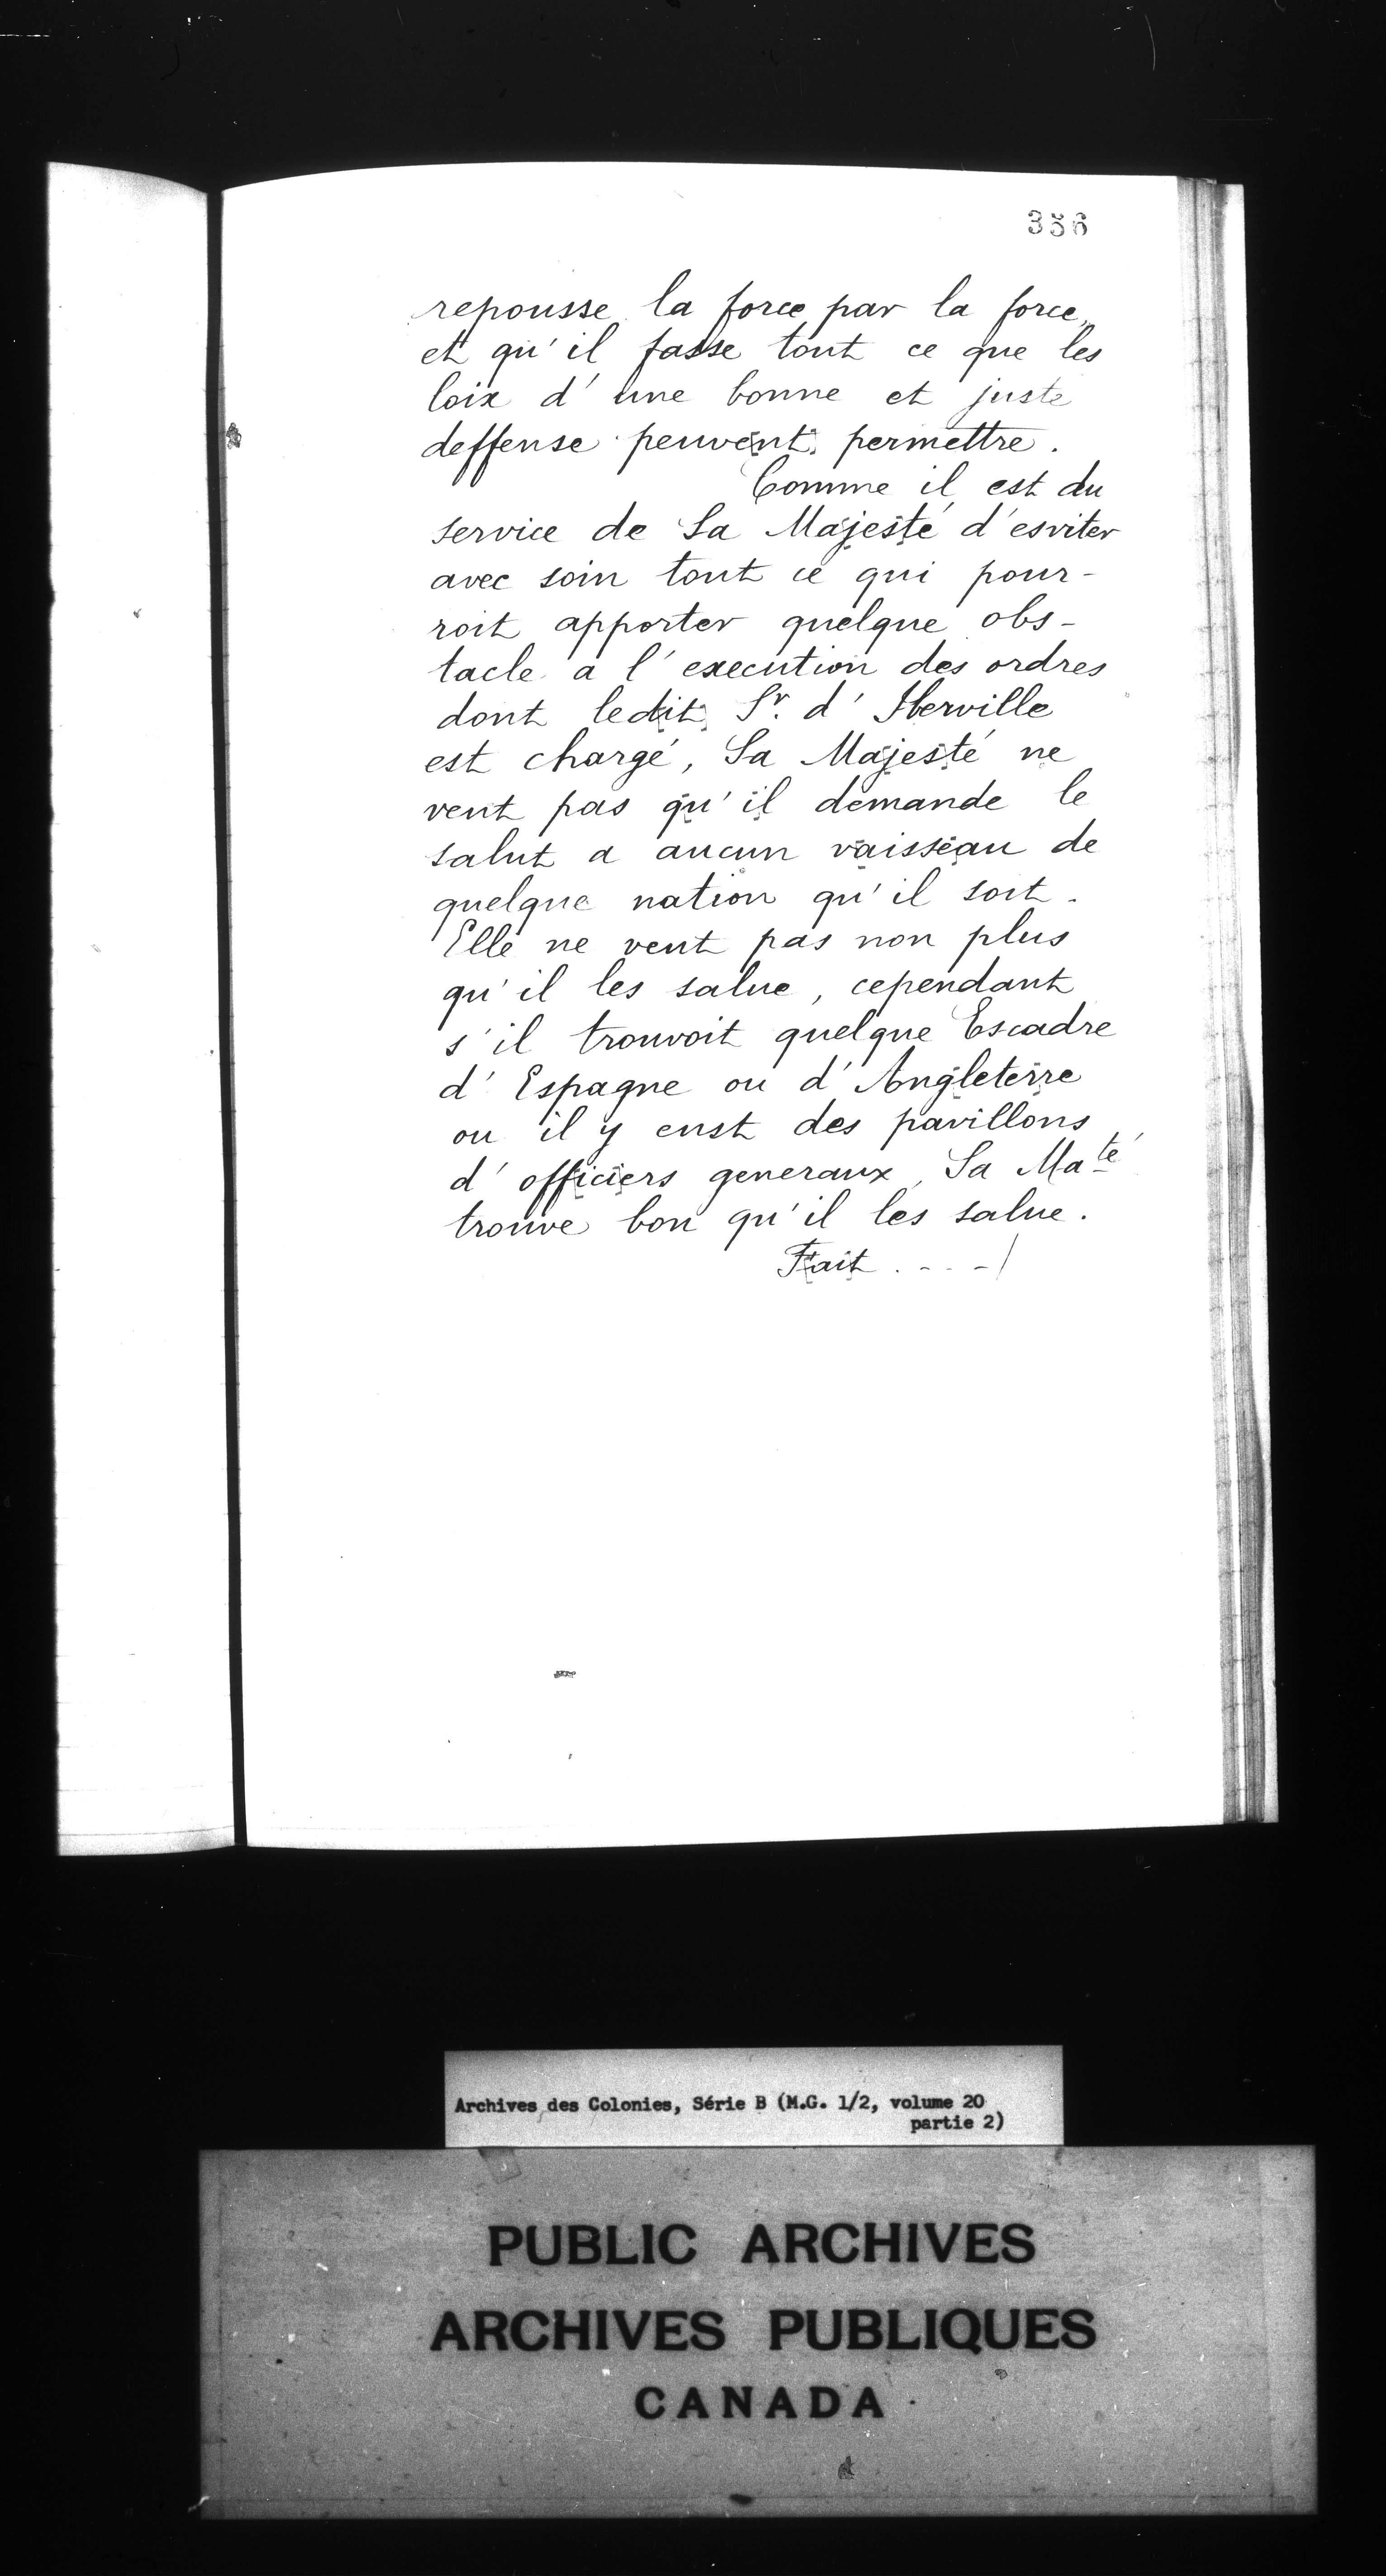 356
repousse la force par la force,
et qu'il fasse tout ce que les
loix d'une bonne et juste
deffense peuvent permettre.
Comme il est du
service de Sa Majesté d'esviter
avec soin tout ce qui pour-
roit apporter quelque obs-
tacle a l'execution des ordres
dont ledit Sr. d'Iberville
est chargé, Sa Majesté ne
veut pas qu'il demande le
salut a aucun vaisseau de
quelque nation qu'il soit.
Elle ne veut pas non plus
qu'il les salue, cependant
s'il trouvoit quelque Escadre
d'Espagne ou d'Angleterre
ou il y eust des pavillons
d'officiers generaux, Sa Maté
trouve bon qu'il les salue.
Fait . - - - /
Archives des Colonies, Série B (M.G. 1/2, volume 20
partie 2)
PUBLIC ARCHIVES
ARCHIVES PUBLIQUES
CANADA